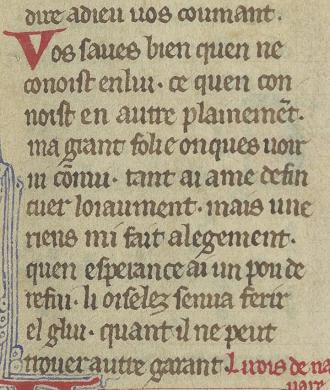 dire adieu uos coumant.
Vos saues bien quen ne
conoist enlui. ce quen con
noist en autre plainemēt.
ma grant folie onques uoir
ni cōnui. tant ai ame defin
cuer loiaument. mais une
riens mi fait alegement.
quen esperance ai un pou de
refui. li oiselez senua ferir
el glui. quant il ne peut
trouer autre garant. Li rois de na
uare